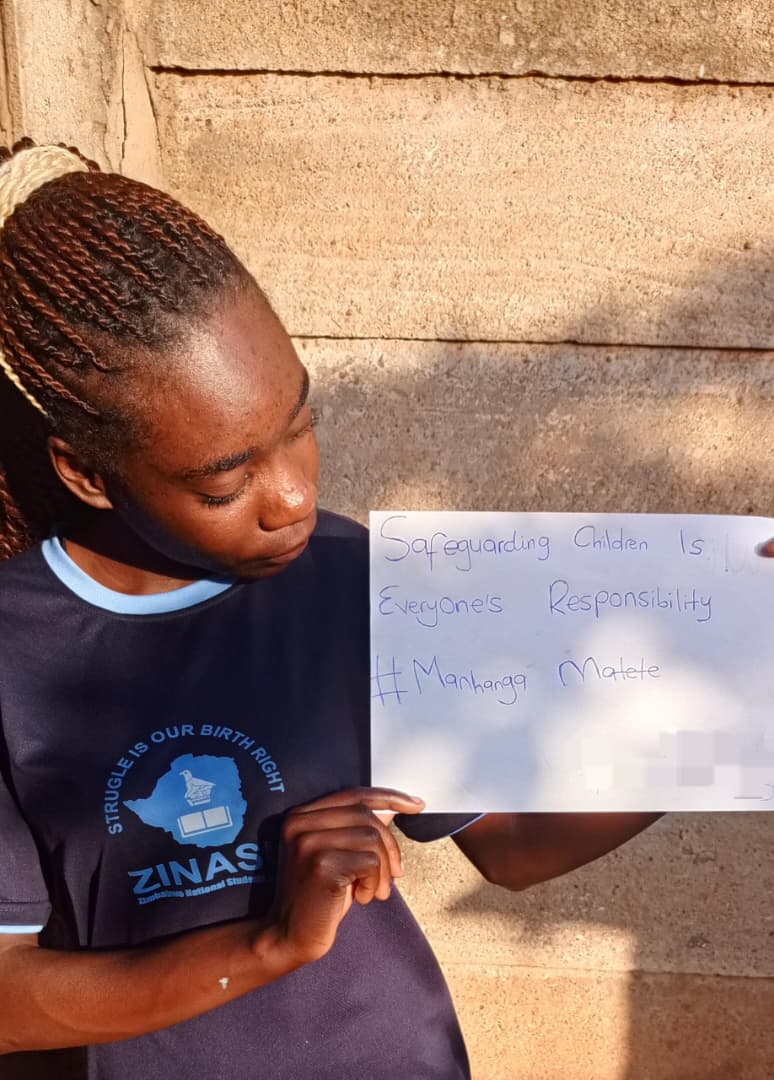 Safeguarding Children Is
Everyone's Responsibility
#Manhanga Matete
STRUGLE IS OUR BIRTH RIGHT
ZINAS
Zimbabwe National Studen